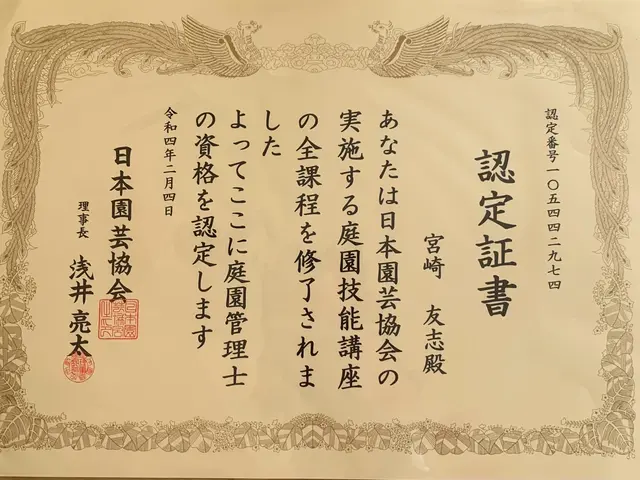 認定番号一〇五四四二九七四
認定証書
宮崎 友志殿
あなたは日本園芸協会の
実施する庭園技能講座
の全課程を修了されま
した
よってここに庭園管理士
の資格を認定します
令和四年二月四日
日本園芸協会
理事長 浅井亮太